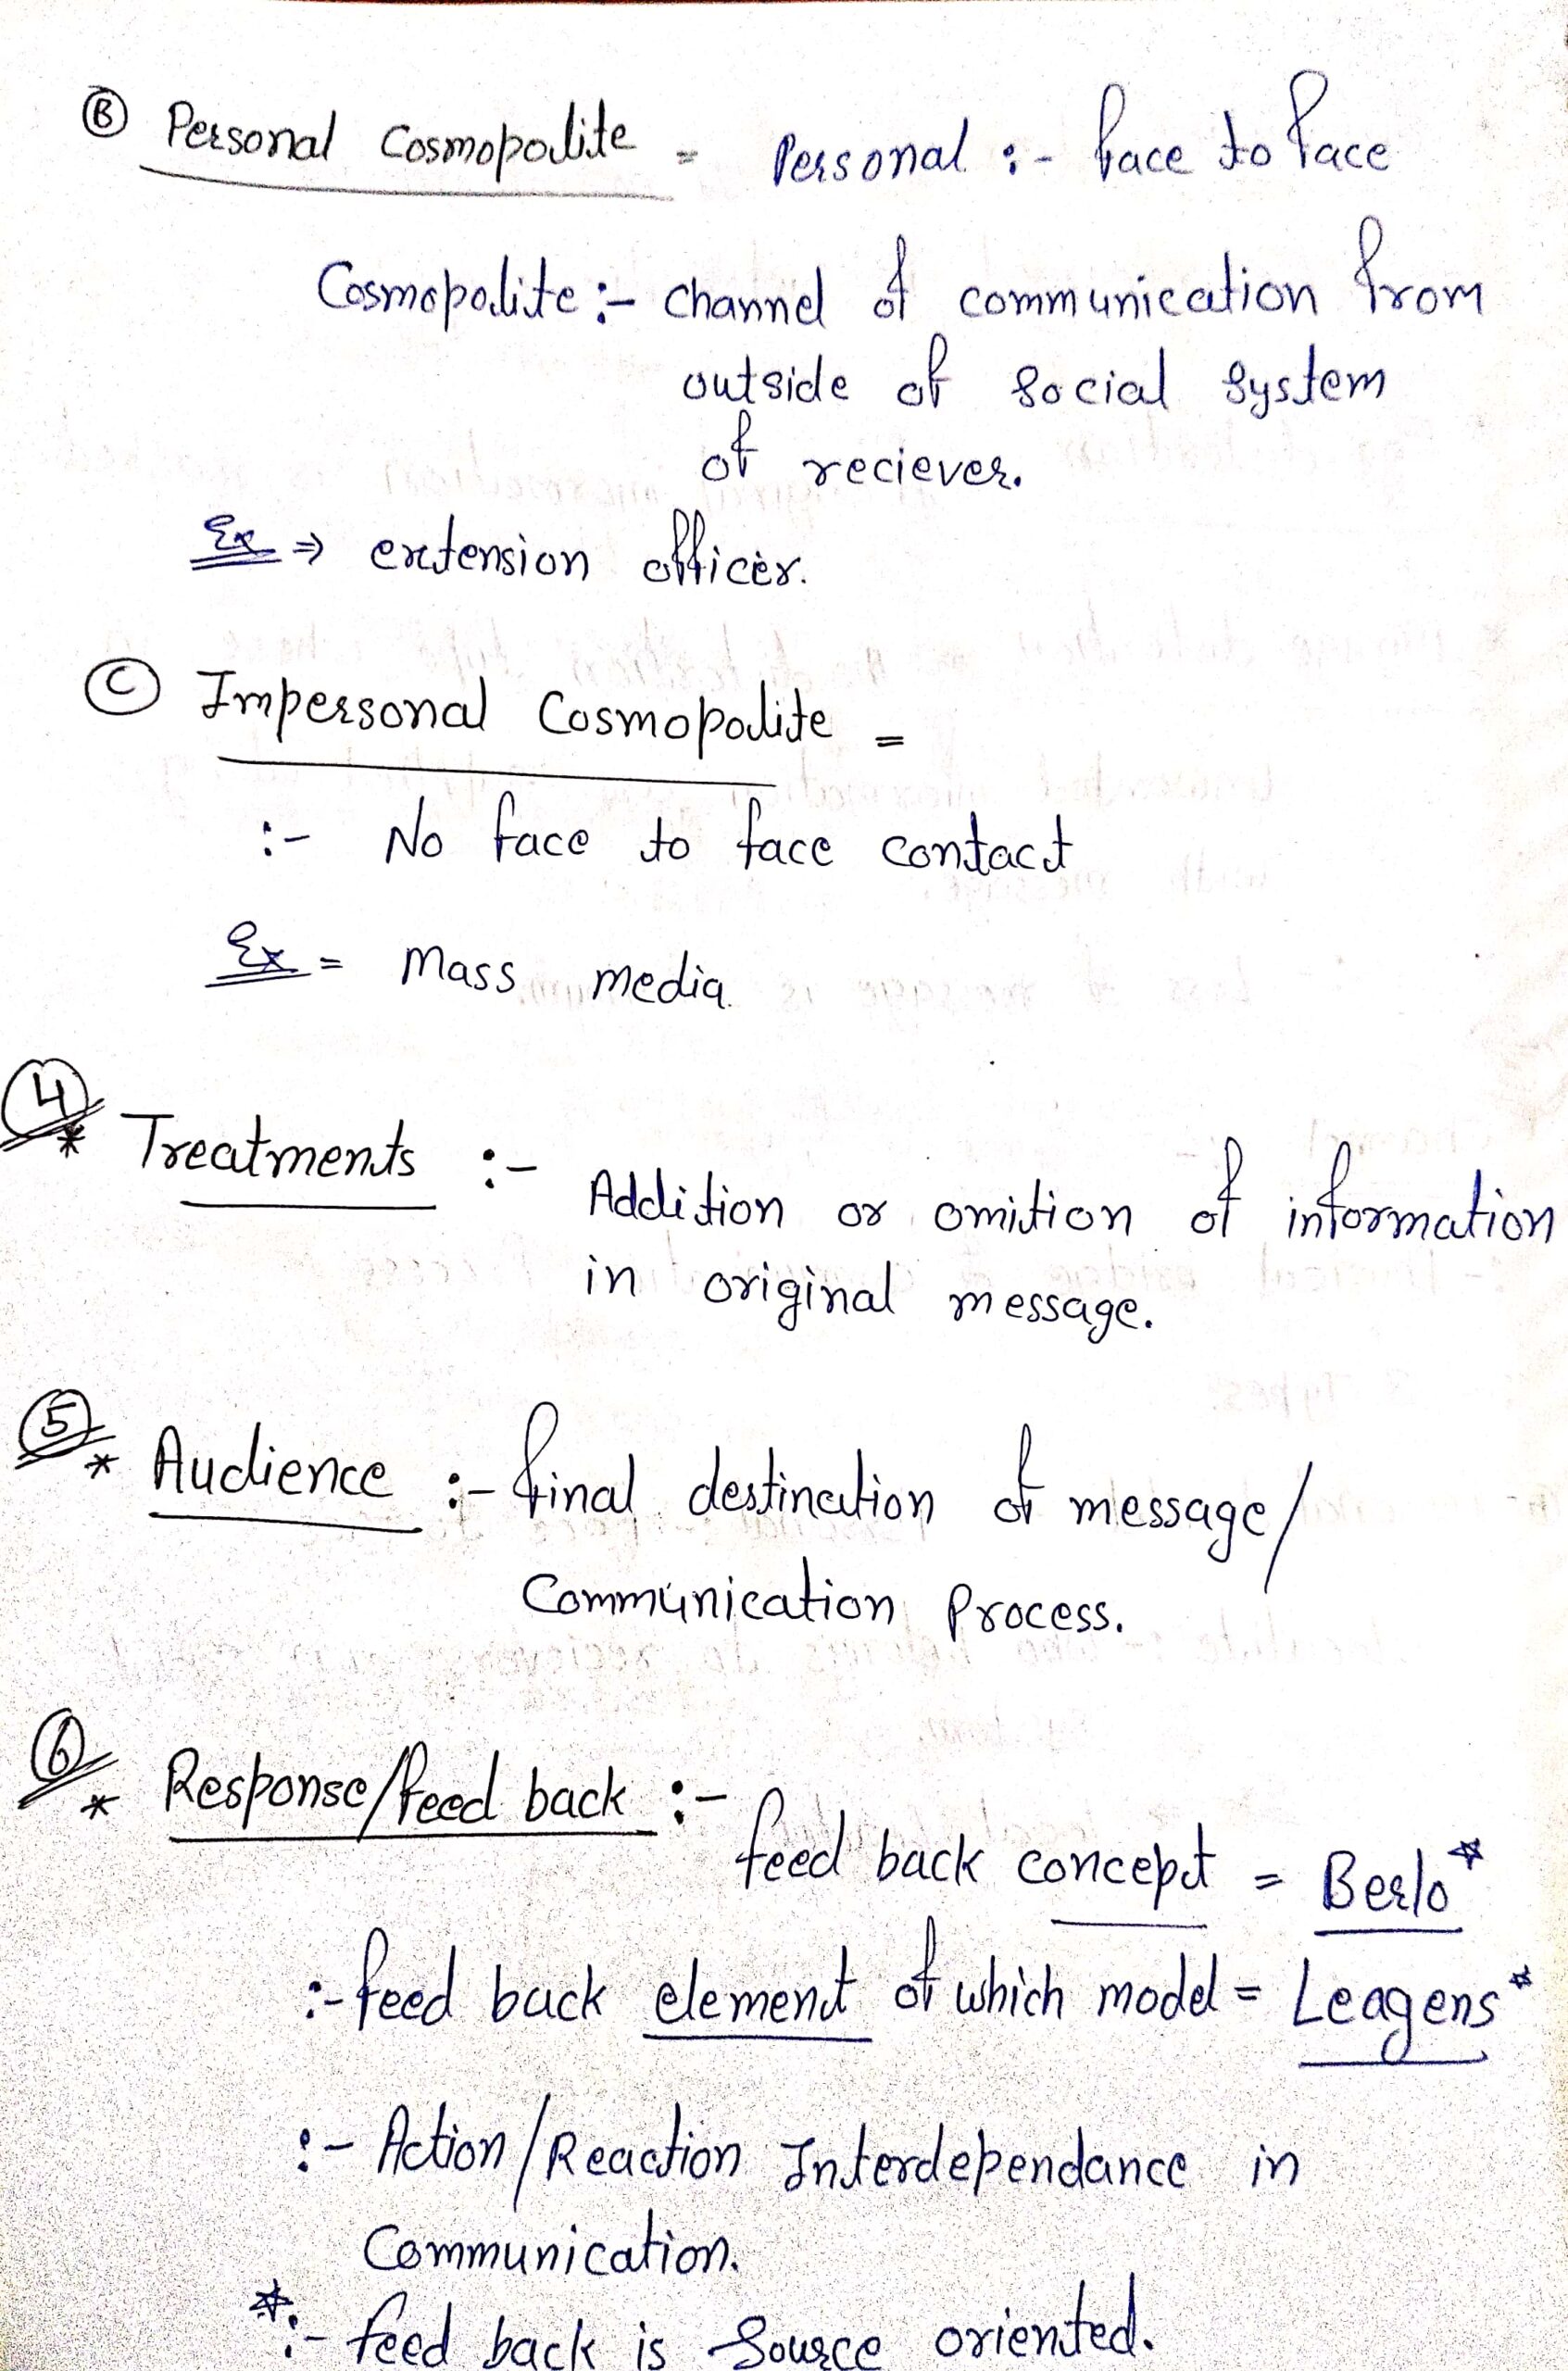 Ⓑ Personal Cosmopolite = Personal :- face to face
Cosmopolite :- channel of communication from
outside of social system
of reciever.
Ex ⇒ extension officer.
Ⓒ Impersonal Cosmopolite =
:- No face to face contact
Ex = Mass media
④ * Treatments :- Addition or omition of information
in original message.
⑤ * Audience :- final destination of message/
Communication Process.
⑥ * Response/feed back :-
feed back concept = Berlo *
:- feed back element of which model = Leagens *
:- Action/Reaction Interdependance in
Communication.
* :- feed back is Source oriented.